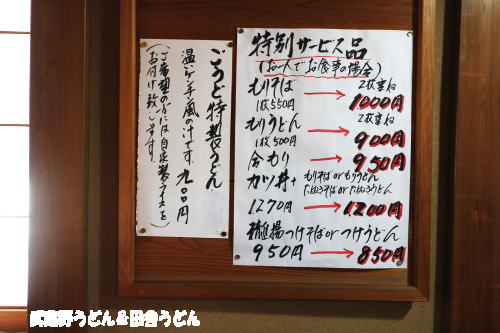 特別サービス品
(お一人でお食事の場合)
もりそば 2枚重ね
1枚550円 → 1000円
もりうどん 2枚重ね
1枚500円 → 900円
合もり → 950円
カツ丼+ もりそばorもりうどん
たぬきそばorたぬきうどん
1270円 → 1200円
掻揚つけそばorつけうどん
950円 → 850円
ごうど特製うどん
温いゲンチ風の汁です 九〇〇円
(ご希望の方には自家製ラー油を
お付け致します)
武蔵野うどん&田舎うどん